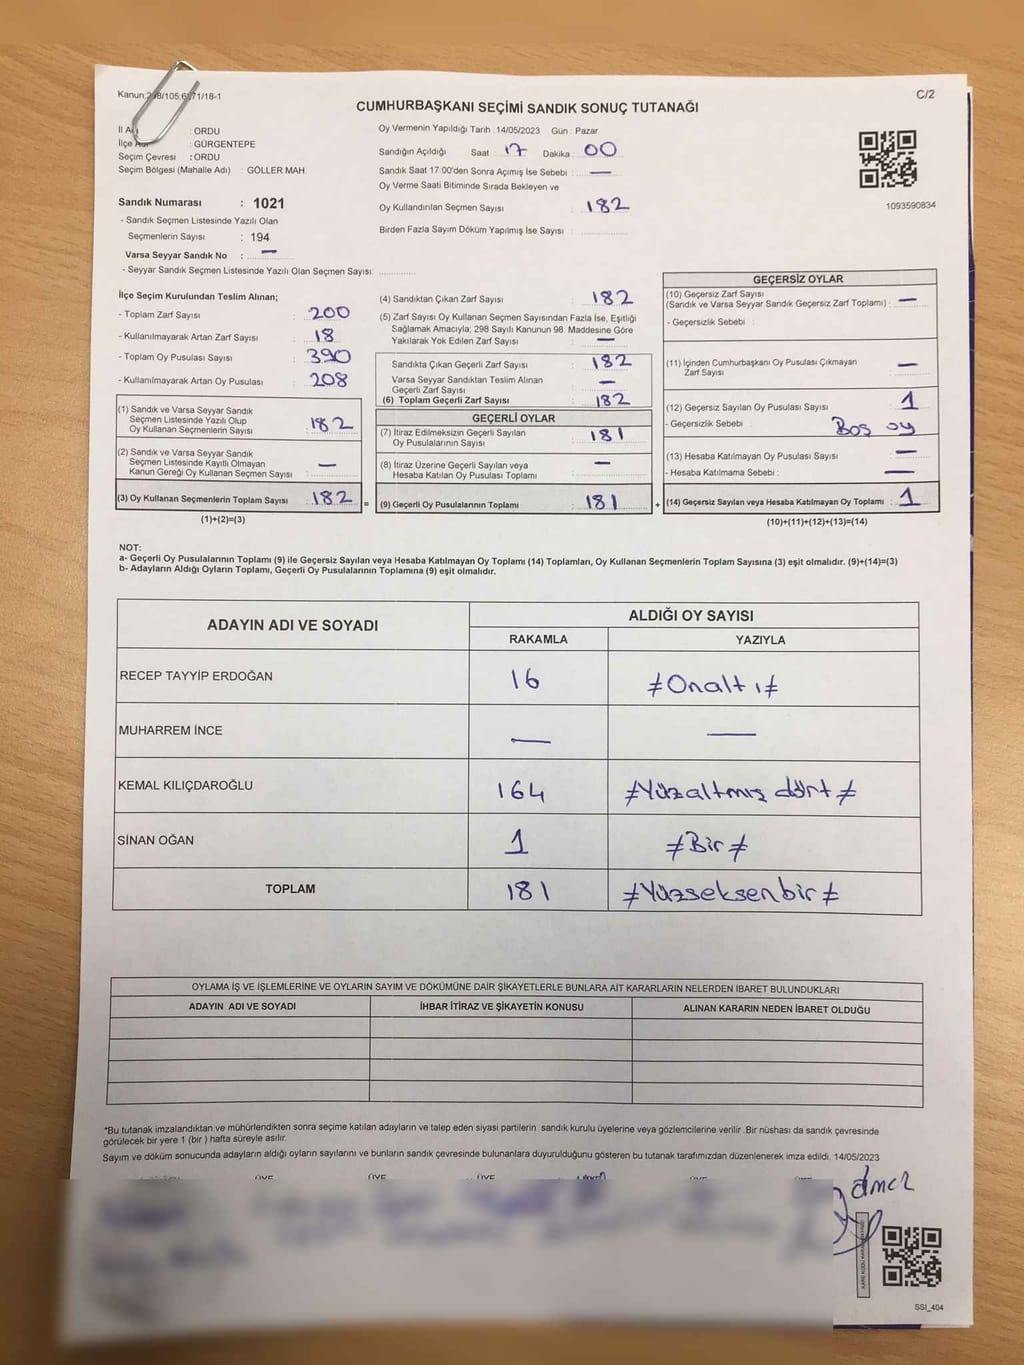 Kanun: /105:6 71/18-1
C/2
CUMHURBAŞKANI SEÇİMİ SANDIK SONUÇ TUTANAĞI
İl A : ORDU
İlçe : GÜRGENTEPE
Seçim Çevresi : ORDU
Seçim Bölgesi (Mahalle Adı) : GÖLLER MAH
Sandık Numarası : 1021
- Sandık Seçmen Listesinde Yazılı Olan
Seçmenlerin Sayısı : 194
Varsa Seyyar Sandık No : —
- Seyyar Sandık Seçmen Listesinde Yazılı Olan Seçmen Sayısı: ............
Oy Vermenin Yapıldığı Tarih : 14/05/2023 Gün : Pazar
Sandığın Açıldığı Saat : 17 Dakika : 00
Sandık Saat 17:00'den Sonra Açımış İse Sebebi : —
Oy Verme Saati Bitiminde Sırada Bekleyen ve
Oy Kullandırılan Seçmen Sayısı : 182
Birden Fazla Sayım Döküm Yapılmış İse Sayısı : ............
1093590834
İlçe Seçim Kurulundan Teslim Alınan;
- Toplam Zarf Sayısı : 200
- Kullanılmayarak Artan Zarf Sayısı : 18
- Toplam Oy Pusulası Sayısı : 390
- Kullanılmayarak Artan Oy Pusulası : 208
(1) Sandık ve Varsa Seyyar Sandık
Seçmen Listesinde Yazılı Olup
Oy Kullanan Seçmenlerin Sayısı : 182
(2) Sandık ve Varsa Seyyar Sandık
Seçmen Listesinde Kayıtlı Olmayan
Kanun Gereği Oy Kullanan Seçmen Sayısı : —
(3) Oy Kullanan Seçmenlerin Toplam Sayısı : 182 =
(1)+(2)=(3)
(4) Sandıktan Çıkan Zarf Sayısı : 182
(5) Zarf Sayısı Oy Kullanan Seçmen Sayısından Fazla İse, Eşitliği
Sağlamak Amacıyla; 298 Sayılı Kanunun 98. Maddesine Göre
Yakılarak Yok Edilen Zarf Sayısı : —
Sandıkta Çıkan Geçerli Zarf Sayısı : 182
Varsa Seyyar Sandıktan Teslim Alınan
Geçerli Zarf Sayısı : —
(6) Toplam Geçerli Zarf Sayısı : 182
GEÇERLİ OYLAR
(7) İtiraz Edilmeksizin Geçerli Sayılan
Oy Pusulalarının Sayısı : 181
(8) İtiraz Üzerine Geçerli Sayılan veya
Hesaba Katılan Oy Pusulası Toplamı : —
(9) Geçerli Oy Pusulalarının Toplamı : 181 +
GEÇERSİZ OYLAR
(10) Geçersiz Zarf Sayısı
(Sandık ve Varsa Seyyar Sandık Geçersiz Zarf Toplamı) : —
- Geçersizlik Sebebi :
(11) İçinden Cumhurbaşkanı Oy Pusulası Çıkmayan
Zarf Sayısı : —
(12) Geçersiz Sayılan Oy Pusulası Sayısı : 1
- Geçersizlik Sebebi : Boş oy
(13) Hesaba Katılmayan Oy Pusulası Sayısı : —
- Hesaba Katılmama Sebebi : —
(14) Geçersiz Sayılan veya Hesaba Katılmayan Oy Toplamı : 1
(10)+(11)+(12)+(13)=(14)
NOT:
a- Geçerli Oy Pusulalarının Toplamı (9) ile Geçersiz Sayılan veya Hesaba Katılmayan Oy Toplamı (14) Toplamları, Oy Kullanan Seçmenlerin Toplam Sayısına (3) eşit olmalıdır. (9)+(14)=(3)
b- Adayların Aldığı Oyların Toplamı, Geçerli Oy Pusulalarının Toplamına (9) eşit olmalıdır.
ADAYIN ADI VE SOYADI
ALDIĞI OY SAYISI
RAKAMLA YAZIYLA
RECEP TAYYİP ERDOĞAN 16 ≠Onaltı≠
MUHARREM İNCE — —
KEMAL KILIÇDAROĞLU 164 ≠Yüzaltmış dört≠
SİNAN OĞAN 1 ≠Bir≠
TOPLAM 181 ≠Yüzseksenbir≠
OYLAMA İŞ VE İŞLEMLERİNE VE OYLARIN SAYIM VE DÖKÜMÜNE DAİR ŞİKAYETLERLE BUNLARA AİT KARARLARIN NELERDEN İBARET BULUNDUKLARI
ADAYIN ADI VE SOYADI İHBAR İTİRAZ VE ŞİKAYETİN KONUSU ALINAN KARARIN NEDEN İBARET OLDUĞU
*Bu tutanak imzalandıktan ve mühürlendikten sonra seçime katılan adayların ve talep eden siyasi partilerin sandık kurulu üyelerine veya gözlemcilerine verilir .Bir nüshası da sandık çevresinde
görülecek bir yere 1 (bir ) hafta süreyle asılır.
Sayım ve döküm sonucunda adayların aldığı oyların sayılarını ve bunların sandık çevresinde bulunanlara duyurulduğunu gösteren bu tutanak tarafımızdan düzenlenerek imza edildi. 14/05/2023
ÜYE ÜYE ÜYE
SSI_404